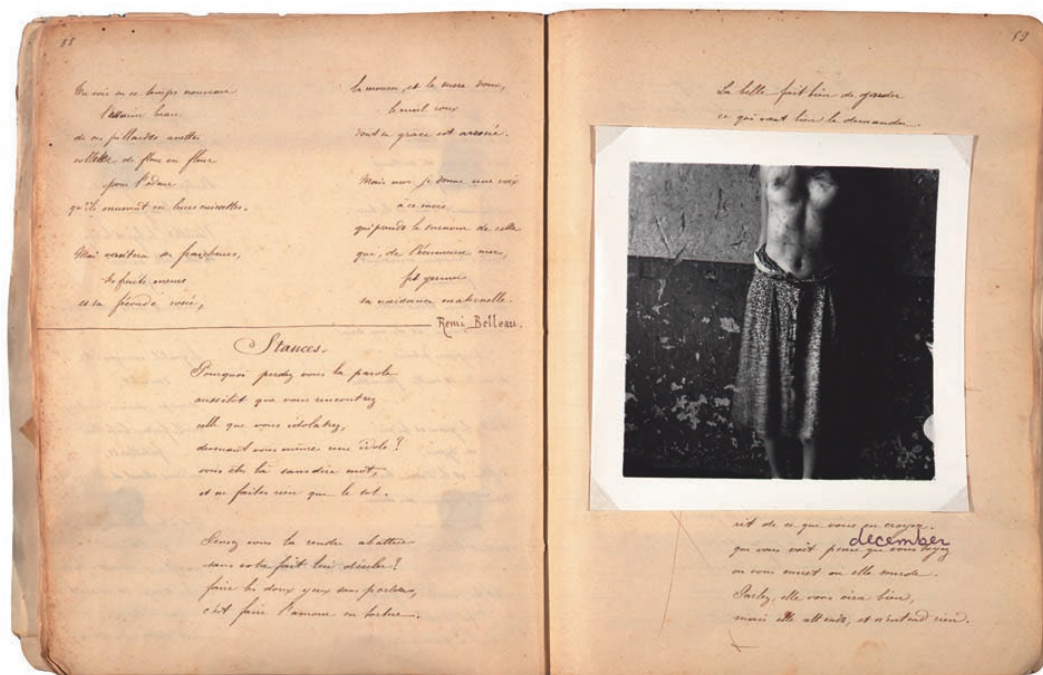 88
Tu vois en ce temps nouveau
l'essaim beau
de ces pillardes avettes
volleter de fleur en fleur
pour l'odeur
qu'ils mussent en leurs cuissettes.
Mai vantera ses fraicheurs,
Ses fruits meurs
et sa féconde rosée,
la manne, et le sucre doux,
le miel roux
dont sa grace est arrosée.
Mais moi je donne ma voix
à ce mois
qui prend le surnom de celle
qui, de l'écumeuse mer,
fit germer
sa naissance maternelle.
Remi Belleau.
Stances.
Pourquoi perdez vous la parole
aussitôt que vous rencontrez
celle que vous idolatrez,
devenant vous même une idole?
vous êtes là sans dire mot,
et ne faites rien que le sot.
Pensez vous la rendre abattue
sans votre fait lui déceler?
faire les doux yeux sans parler,
c'est faire l'amour en tortue.
89
La belle fait bien de garder
ce qui vaut bien le demander.
rit de ce que vous en croyez.
december
qui vous voit pense que vous soyez
ou vous muet ou elle sourde.
Parlez, elle vous oira bien,
mais elle attend, et n'entend rien.